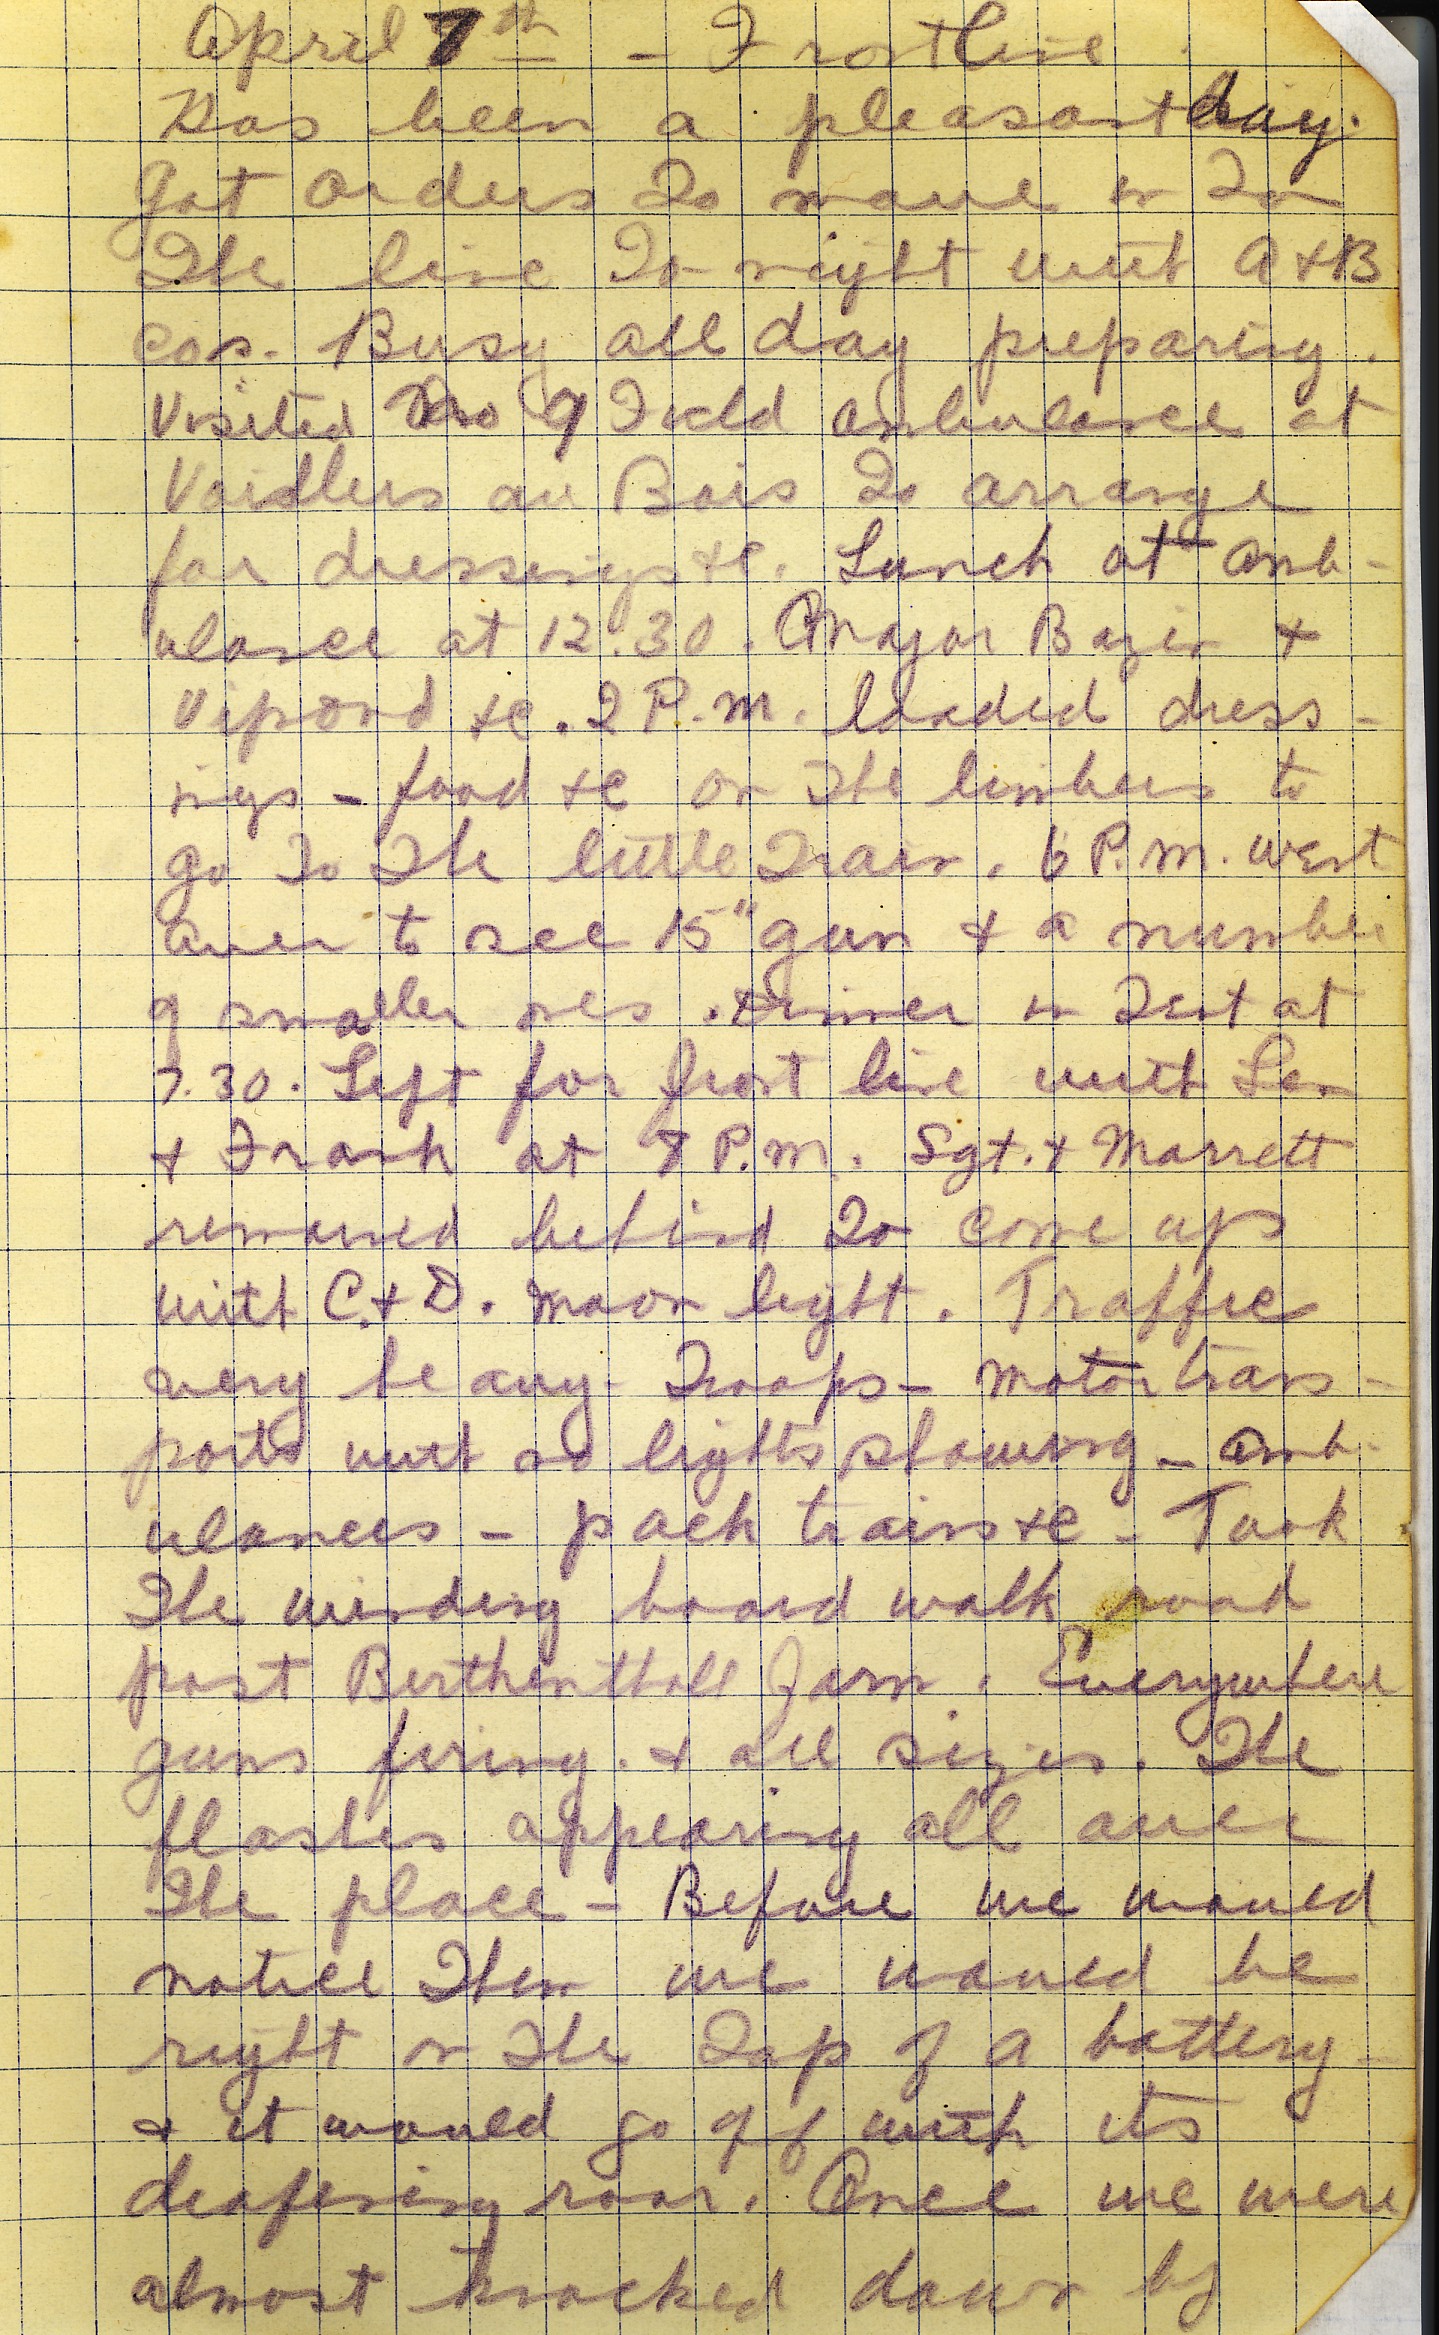 April 7th - Frontline
Has been a pleasant day.
Got orders to move in to
the line to-night with A & B
cos. Busy all day preparing.
Visited No 9 Field ambulance at
Vaidlers au Bois to arrange
for dressings &c. Lunch at amb-
ulance at 12.30. Major Bazin &
Vipond &c. 2 P.m. loaded dress-
ings - food &c on the limbers to
go to the little train. 6 P.m. went
over to see 15" gun & a number
of smaller ones. Dinner in tent at
7.30. Left for front line with Len
& Frank at 8 P.m. Sgt. & Marrett
remained behind to come up
with C. & D. Moon light. Traffic
very heavy. Troops - motor trans-
ports with no lights showing - amb-
ulances - pack trains &c - Took
the winding board walk road
past Berthenthall farm. Everywhere
guns firing. & all sizes. The
flashes appearing all over
the place - Before we would
notice them we would be
right on the top of a battery -
& it would go off with its
deafening roar. Once we were
almost knocked down by